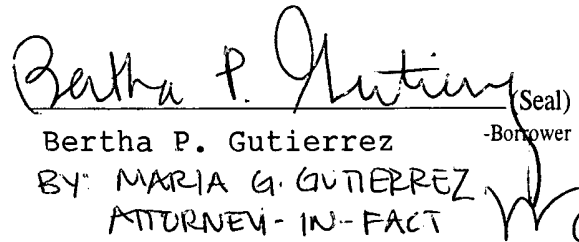 Bertha P. Gutierrez (Seal)
Bertha P. Gutierrez -Borrower
BY: MARIA G. GUTIERREZ
ATTORNEY-IN-FACT